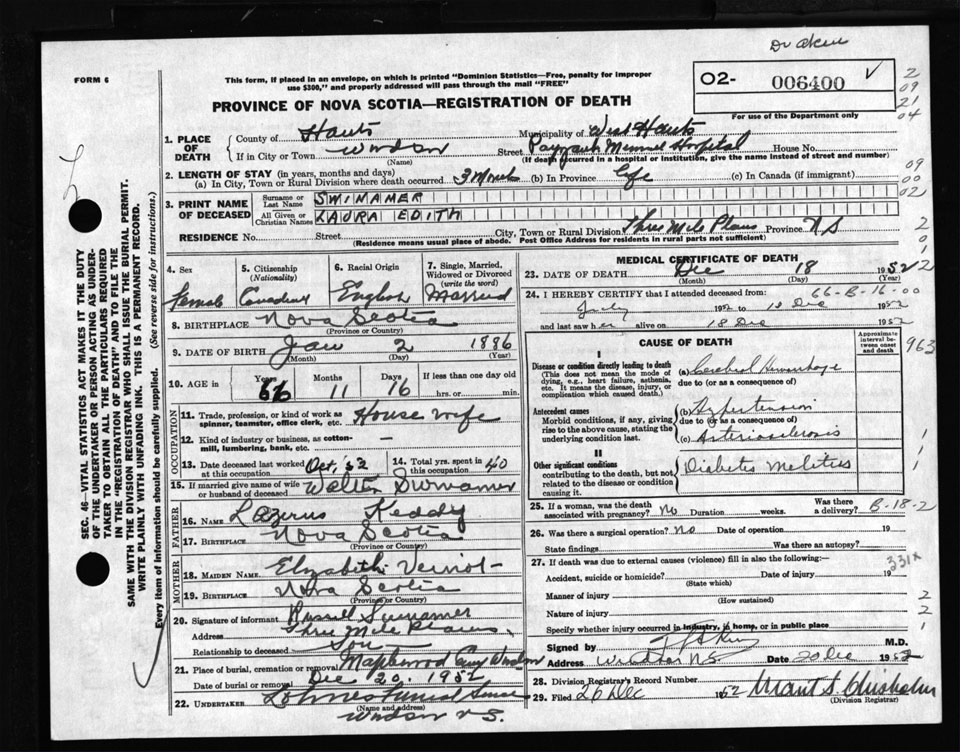 Dr Akin
FORM 6
This form, if placed in an envelope, on which is printed "Dominion Statistics—Free, penalty for improper
use $300," and properly addressed will pass through the mail "FREE"
02- 006400
For use of the Department only
PROVINCE OF NOVA SCOTIA—REGISTRATION OF DEATH
2
09
21
04
09
00
02
1. PLACE OF DEATH County of Hants Municipality of West Hants
If in City or Town Windsor Street Payzant Memorial Hospital House No.
(Name) (If death occurred in a hospital or institution, give the name instead of street and number)
2. LENGTH OF STAY (in years, months and days)
(a) In City, Town or Rural Division where death occurred 3 Months (b) In Province life (c) In Canada (if immigrant)
3. PRINT NAME OF DECEASED
Surname or Last Name SWINAMER
All Given or Christian Names LAURA EDITH
RESIDENCE No. Street City, Town or Rural Division Three Mile Plains Province N S
(Residence means usual place of abode. Post Office Address for residents in rural parts not sufficient)
4. Sex Female
5. Citizenship (Nationality) Canadian
6. Racial Origin English
7. Single, Married, Widowed or Divorced (write the word) Married
8. BIRTHPLACE Nova Scotia
(Province or Country)
9. DATE OF BIRTH Jan 2 1886
(Month) (Day) (Year)
10. AGE in Years 66 Months 11 Days 16 If less than one day old
hrs. or min.
OCCUPATION
11. Trade, profession, or kind of work as spinner, teamster, office clerk, etc. House wife
12. Kind of industry or business, as cotton-mill, lumbering, bank, etc. —
13. Date deceased last worked at this occupation Oct, 52
14. Total yrs. spent in this occupation 40
15. If married give name of wife or husband of deceased Walter Swinamer
FATHER
16. Name Lazerus Keddy
17. Birthplace Nova Scotia
(Province or Country)
MOTHER
18. MAIDEN NAME Elizabeth Veinot
19. BIRTHPLACE Nova Scotia
(Province or Country)
20. Signature of informant Russel Swinamer
Address Three Mile Plains
Relationship to deceased Son
21. Place of burial, cremation or removal Maplewood Cem Windsor
Date of burial or removal Dec 20, 1952
22. UNDERTAKER Funeral Service
(Name and address)
Windsor N S.
MEDICAL CERTIFICATE OF DEATH
23. DATE OF DEATH Dec 18 1952
66-B-16-00
24. I HEREBY CERTIFY that I attended deceased from:
July 1952 to 18 Dec 1952
and last saw her alive on 18 Dec 1952
CAUSE OF DEATH
Approximate interval between onset and death
963
I
Disease or condition directly leading to death
(This does not mean the mode of dying, e.g., heart failure, asthenia, etc. It means the disease, injury, or complication which caused death.)
(a) Cerebral Hemorrhage
due to (or as a consequence of)
Antecedent causes
Morbid conditions, if any, giving rise to the above cause, stating the underlying condition last.
(b) Hypertension
due to (or as a consequence of)
(c) Arteriosclerosis
II
Other significant conditions
contributing to the death, but not related to the disease or condition causing it.
Diabetes Melitus
25. If a woman, was the death associated with pregnancy? No Duration weeks. Was there a delivery? B-18-2
26. Was there a surgical operation? No Date of operation 19
State findings Was there an autopsy?
27. If death was due to external causes (violence) fill in also the following:
331x
Accident, suicide or homicide? Date of injury 19
(State which)
Manner of injury
(How sustained)
Nature of injury
Specify whether injury occurred in industry, in home, or in public place
Signed M.D.
Address Windsor N S. Date 20 Dec 1952
28. Division Registrar's Record Number
29. Filed 26 Dec 1952 Chisholm
(Division Registrar)
SEC. 46—VITAL STATISTICS ACT MAKES IT THE DUTY
OF THE UNDERTAKER OR PERSON ACTING AS UNDER-
TAKER TO OBTAIN ALL THE PARTICULARS REQUIRED
IN THE "REGISTRATION OF DEATH" AND TO FILE THE
SAME WITH THE DIVISION REGISTRAR WHO SHALL ISSUE THE BURIAL PERMIT.
WRITE PLAINLY WITH UNFADING INK. THIS IS A PERMANENT RECORD.
Every item of information should be carefully supplied. (See reverse side for instructions.)